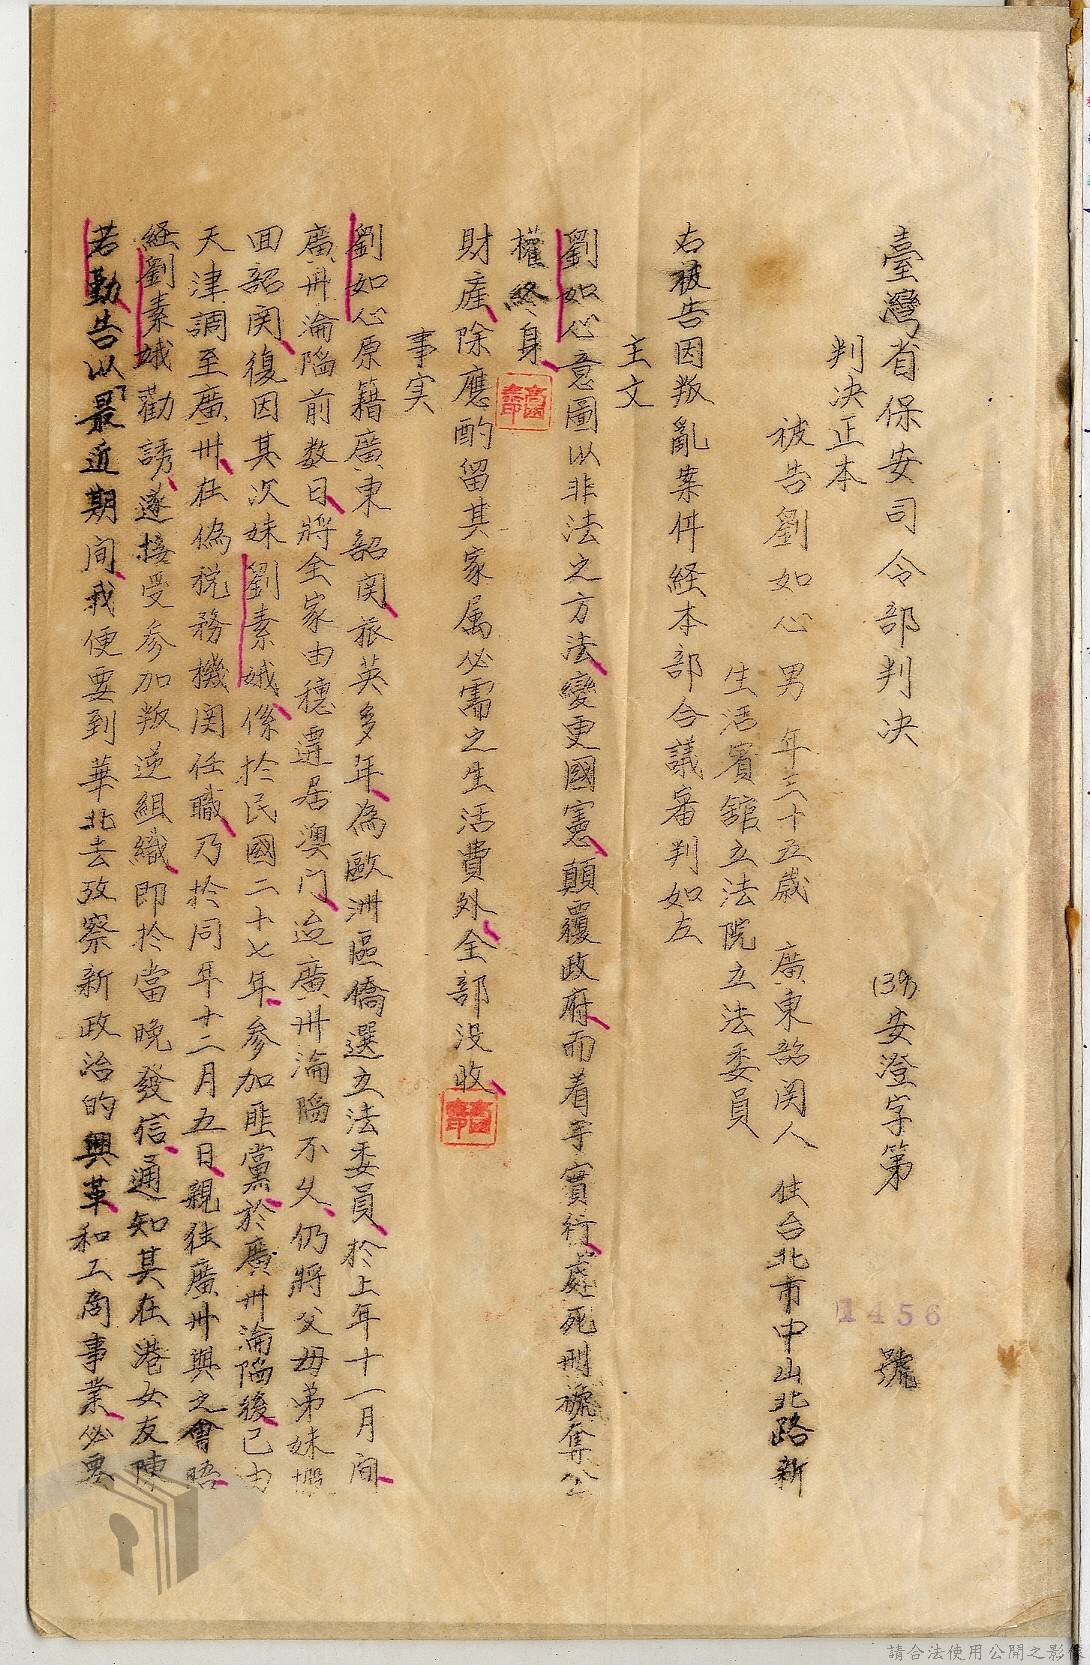 臺灣省保安司令部判决
(39)安澄字第
1456
號
判决正本
被告劉如心 男 年三十五歲 廣東韶関人 住台北市中山北路新
生活賓舘立法院立法委員
右被告因叛亂案件経本部合議審判如左
主文
劉如心意圖以非法之方法變更國憲顛覆政府而着手實行處死刑褫奪公
權終身
財產除應酌留其家属必需之生活費外全部没收
事实
劉如心原籍廣東韶関旅英多年為歐洲區僑選立法委員於上年十一月间
廣卅淪陷前数日將全家由穗遷居澳门迨廣卅淪陷不久仍將父母弟妹搬
回韶関復因其次妹劉素娥係於民國二十七年参加匪黨於廣卅淪陷後已由
天津調至廣卅在偽税務機関任職乃於同年十二月五日親往廣卅與之會晤
経劉素娥勸誘遂接受参加叛逆組織即於當晚發信通知其在港女友陳
若勤告以「最近期间我便要到華北去攷察新政治的興革和工商事業必要
請合法使用公開之影像